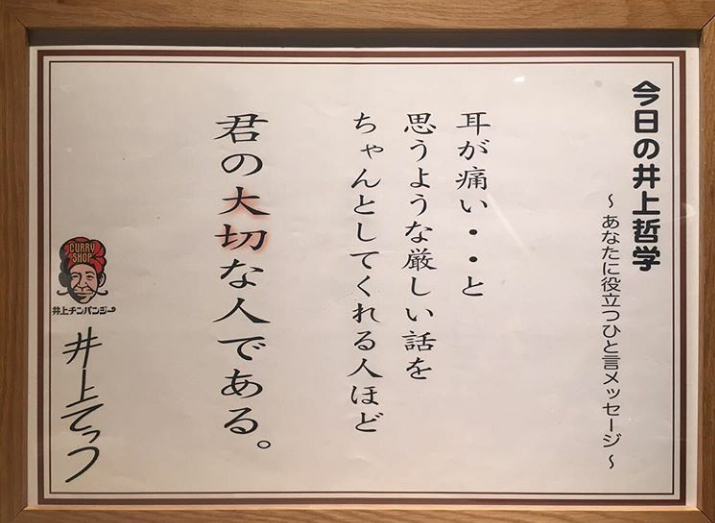 今日の井上哲学
～あなたに役立つひと言メッセージ～
耳が痛い・・と
思うような厳しい話を
ちゃんとしてくれる人ほど
君の大切な人である。
CURRY
SHOP
井上チンパンジー
井上てつ